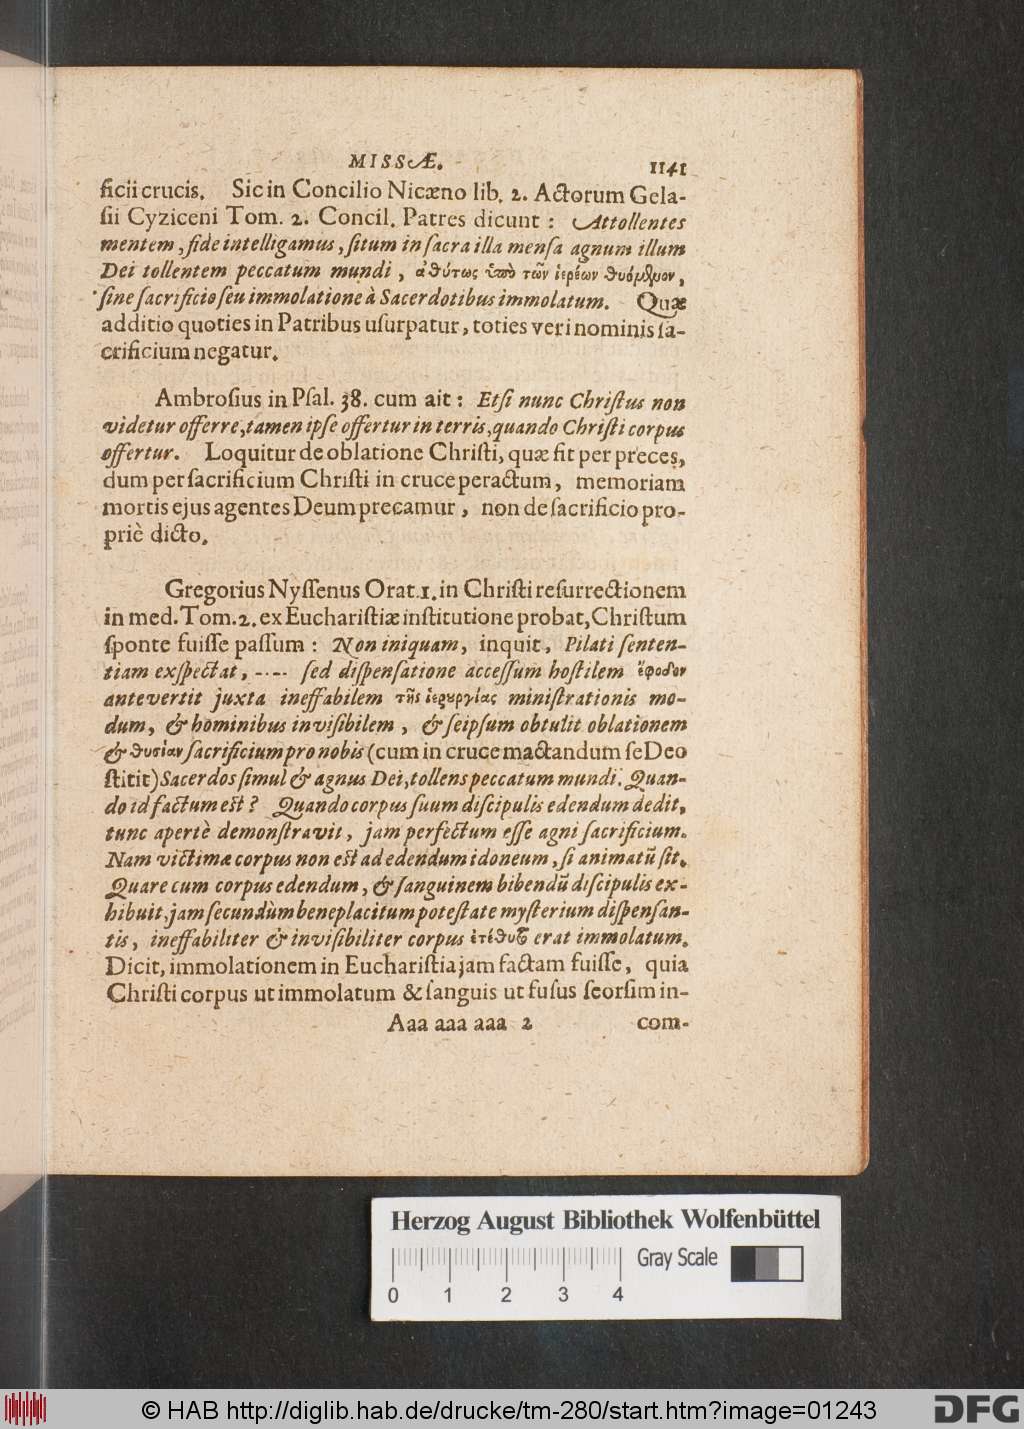 MISSÆ. 1141
ficii crucis. Sic in Concilio Nicæno lib. 2. Actorum Gela-
ſii Cyziceni Tom. 2. Concil. Patres dicunt : Attollentes
mentem, fide intelligamus, ſitum in ſacra illa menſa agnum illum
Dei tollentem peccatum mundi, ἀθύτως ὑπὸ τῶν ἱερέων θυόμενον,
ſine ſacrificio ſeu immolatione à Sacerdotibus immolatum. Quæ
additio quoties in Patribus uſurpatur, toties veri nominis ſa-
crificium negatur.
Ambroſius in Pſal. 38. cum ait : Etſi nunc Chriſtus non
videtur offerre, tamen ipſe offertur in terris, quando Chriſti corpus
offertur. Loquitur de oblatione Chriſti, quæ fit per preces,
dum per ſacrificium Chriſti in cruce peractum, memoriam
mortis ejus agentes Deum precamur, non de ſacrificio pro-
priè dicto.
Gregorius Nyſſenus Orat. 1. in Chriſti reſurrectionem
in med. Tom. 2. ex Euchariſtiæ inſtitutione probat, Chriſtum
ſponte fuiſſe paſſum : Non iniquam, inquit, Pilati ſenten-
tiam exſpectat, -·-- ſed diſpenſatione acceſſum hoſtilem ἔφοδον
antevertit juxta ineffabilem τῆς ἱερουργίας miniſtrationis mo-
dum, & hominibus inviſibilem, & ſeipſum obtulit oblationem
& θυσίαν ſacrificium pro nobis (cum in cruce mactandum ſe Deo
ſtitit) Sacerdos ſimul & agnus Dei, tollens peccatum mundi. Quan-
do id factum eſt? Quando corpus ſuum diſcipulis edendum dedit,
tunc apertè demonſtravit, jam perfectum eſſe agni ſacrificium.
Nam victimæ corpus non eſt ad edendum idoneum, ſi animatũ ſit.
Quare cum corpus edendum, & ſanguinem bibendũ diſcipulis ex-
hibuit, jam ſecundùm beneplacitum poteſtate myſterium diſpenſan-
tis, ineffabiliter & inviſibiliter corpus ἐτέθυτο erat immolatum.
Dicit, immolationem in Euchariſtia jam factam fuiſſe, quia
Chriſti corpus ut immolatum & ſanguis ut fuſus ſeorſim in-
Aaa aaa aaa 2 com-
Herzog August Bibliothek Wolfenbüttel
Gray Scale
0 1 2 3 4
© HAB http://diglib.hab.de/drucke/tm-280/start.htm?image=01243
DFG